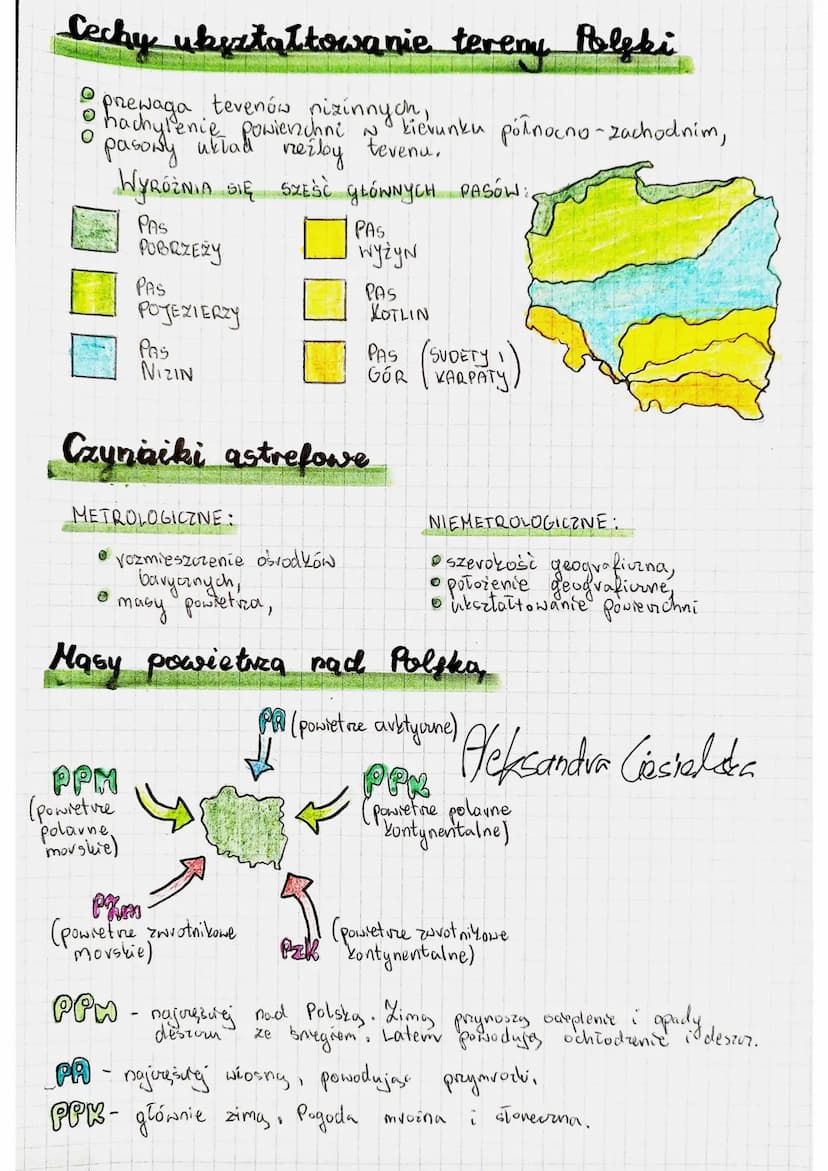 Cechy ukształtowanie tereny Polski
prewaga terenów nizinnych,
nachylenie powierzchni w kierunku północno-zachodnim,
pasowy układ rzeźby terenu.
WYRÓŻNIA SIĘ SZEŚĆ GŁÓWNYCH PASÓW:
PAS
POBRZEŻY
PAS
POJEZIERZY
PAS
NIZIN
PAS
WYŻYN
PAS
KOTLIN
PAS
GÓR (SUDETY I
KARPATY)
Czynniki astrefowe
METROLOGICZNE:
rozmieszczenie ośrodków
barycznych,
masy powietrza,
NIEMETROLOGICZNE:
szerokość geograficzna,
położenie geograficzne,
ukształtowanie powierzchni
Masy powietrza nad Polską
PA (powietrze arktyczne)
Aleksandra Ciesielska
PPM
(powietrze
polarne
morskie)
PPK
(powietrze polarne
kontynentalne)
PZM
(powietrze zwrotnikowe
morskie)
PZK
(powietrze zwrotnikowe
kontynentalne)
PPM - najczęściej nad Polską. Zimą przynoszą ocieplenie i opady
deszczu ze śniegiem. Latem powodują ochłodzenie i deszcz.
PA - najczęściej wiosną, powodując przymrozki.
PPK - głównie zimą. Pogoda mroźna i słoneczna.